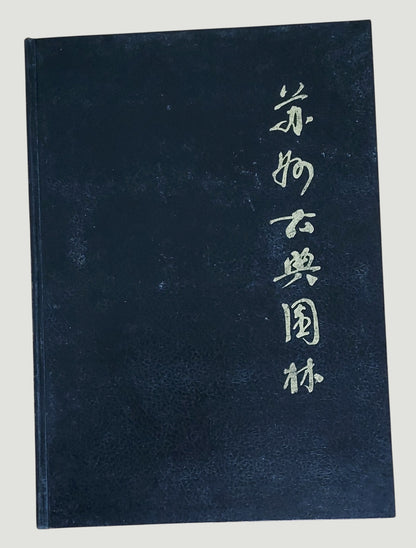 苏州古典园林